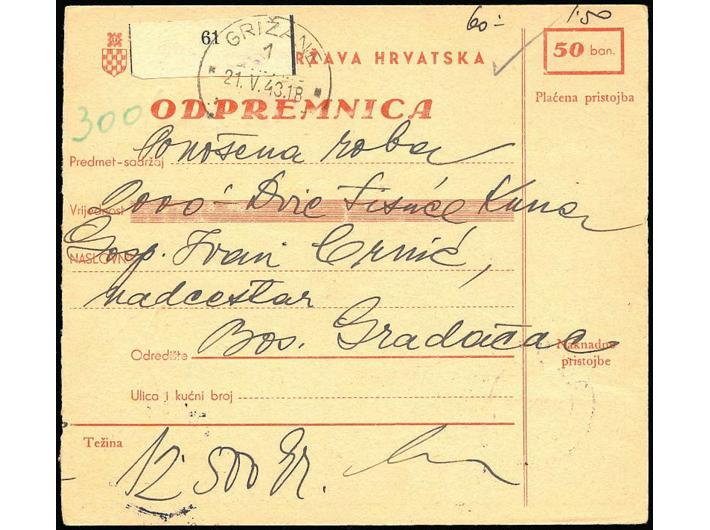 60.- 1.50
61 GRIŽANE 1 21.V.43.18
RŽAVA HRVATSKA
50 ban.
Plaćena pristojba
300
ODPREMNICA
Predmet-sadržaj Ponošena roba
Vrijednost 2000.- Dvie Tisuće Kuna
NASLOVN Gosp. Ivan Crnić,
nadcestar
Odredište Bos. Gradačac
Naknadne pristojbe
Ulica i kućni broj
Težina 12.500 Gr.